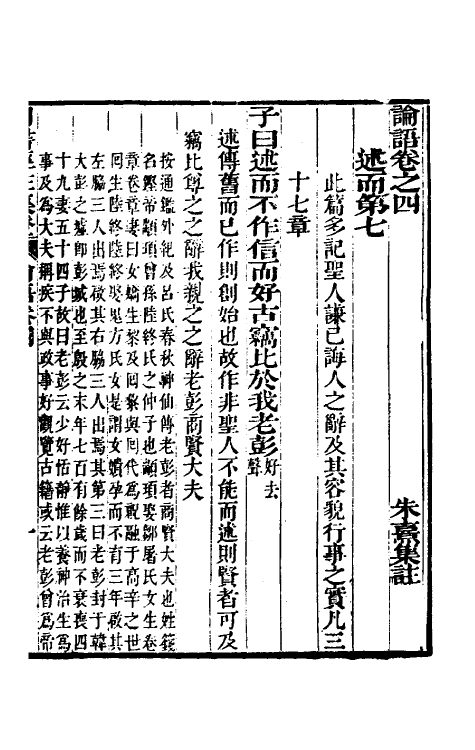 論語卷之四
朱熹集註
述而第七
此篇多記聖人謙己誨人之辭及其容貌行事之實凡三
十七章
子曰述而不作信而好古竊比於我老彭好去聲
述傳舊而已作則創始也故作非聖人不能而述則賢者可及
竊比尊之之辭我親之之辭老彭商賢大夫
按通鑑外紀及呂氏春秋神仙傳老彭者商賢大夫也姓籛
名鏗帝顓頊曾孫陸終氏之仲子也顓頊娶鄒屠氏女生卷
章卷章妻曰女嬌生黎及囘黎與囘代爲祝融于高辛之世
囘生陸終陸終娶鬼方氏女是謂女嬇孕而不育三年啟其
左脇三人出焉啟其右脇三人出焉其第三曰老彭封于韓
大彭之墟卽彭城也至殷之末年七百有餘歲而不衰喪四
十九妻五十四子故曰老彭云少好恬靜惟以養神治生爲
事及爲大夫稱疾不與政事好觀覽古籍或云老彭曾爲帝